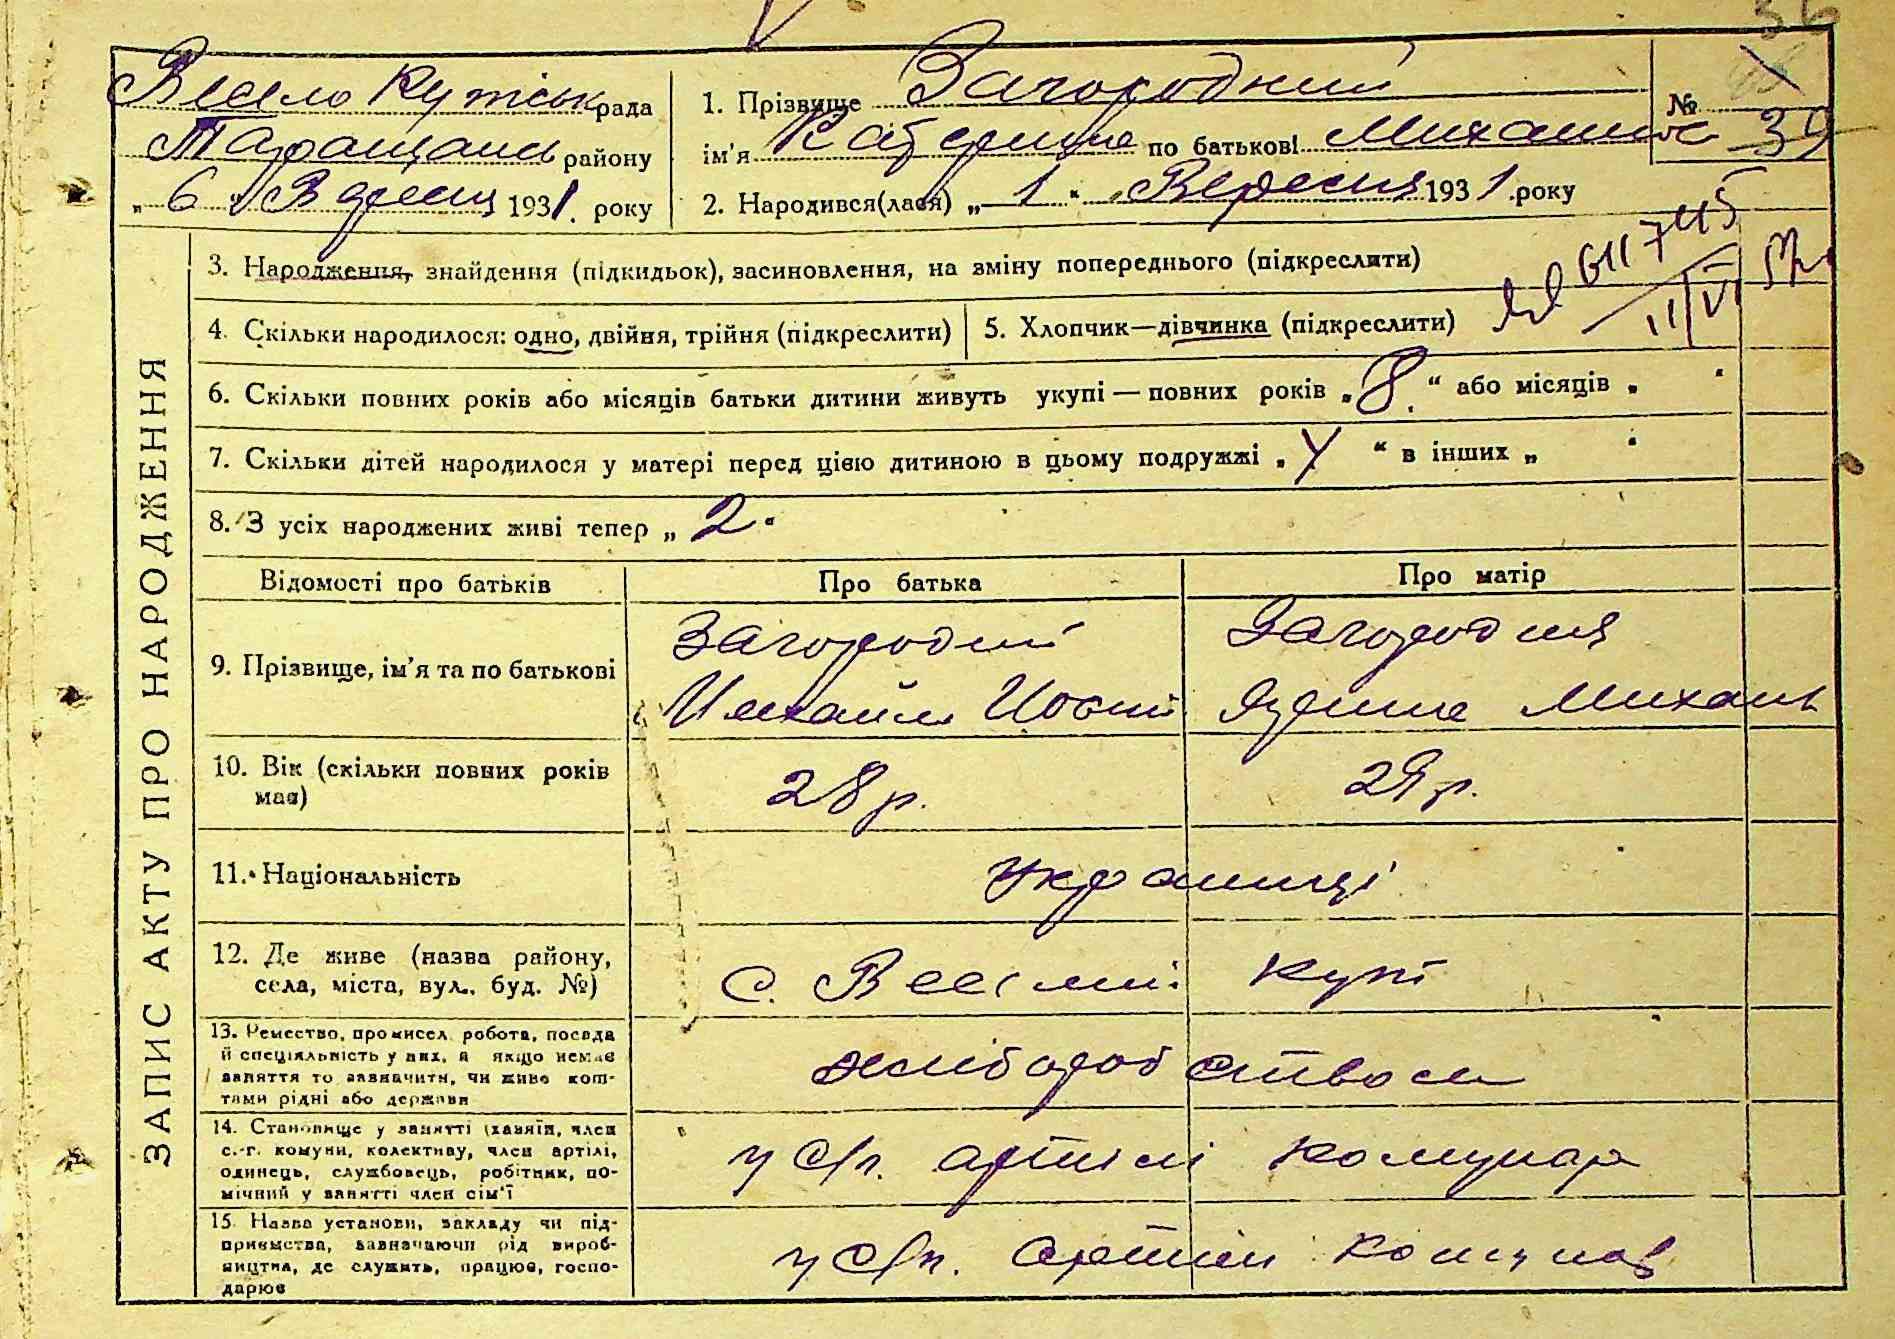 36
Весело Кутськ рада
Таращанс району
„ 6 „ Вересц 1931. року
1. Прізвище Загородний
№ 39
ім'я Катерина по батькові Михайловс
2. Народився(лася) „ 1 “ Вересця 1931 року
ЗАПИС АКТУ ПРО НАРОДЖЕННЯ
3. Народження, знайдення (підкидьок), засиновлення, на зміну попереднього (підкреслити)
611745
11/VI
4. Скільки народилося: одно, двійня, трійня (підкреслити)
5. Хлопчик—дівчинка (підкреслити)
6. Скільки повних років або місяців батьки дитини живуть укупі — повних років „ 8 “ або місяців „ “
7. Скільки дітей народилося у матері перед цією дитиною в цьому подружжі „ “ в інших „ “
8. З усіх народжених живі тепер „ 2 “
Відомості про батьків
Про батька
Про матір
9. Прізвище, ім'я та по батькові
Загородний
Михайло Йосип
Загородня
Михайл
10. Вік (скільки повних років має)
28 р.
29 р.
11. Національність
Українці
12. Де живе (назва району, села, міста, вул., буд. №)
с. Веселий Кут
13. Ремество, промисел, робота, посада
й спеціяльність у них, а якщо немає
заняття то зазначити, чи живе кош-
тами рідні або держави
хліборобством
14. Становище у занятті (хазяїн, член
с.-г. комуни, колективу, член артілі,
одинець, службовець, робітник, по-
мічний у занятті член сім'ї
у с/г. артілі Комунар
15. Назва установи, закладу чи під-
приємства, зазначаючи рід вироб-
ництва, де служить, працює, госпо-
дарює
у с/г. артілі Комунар